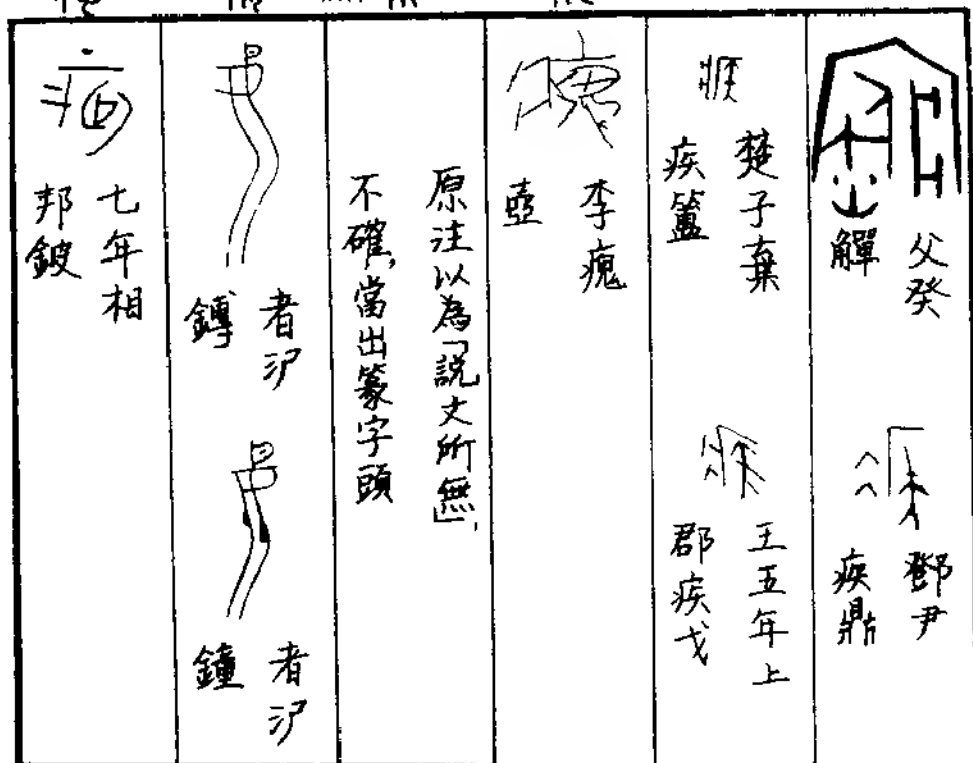 父癸
觶
鄧尹
疾鼎
楚子棄
疾簠
王五年上
郡疾戈
李瘣
壺
原注以為「說文所無」,
不確,當出篆字頭
者㲸
鎛
者㲸
鐘
七年相
邦鈹